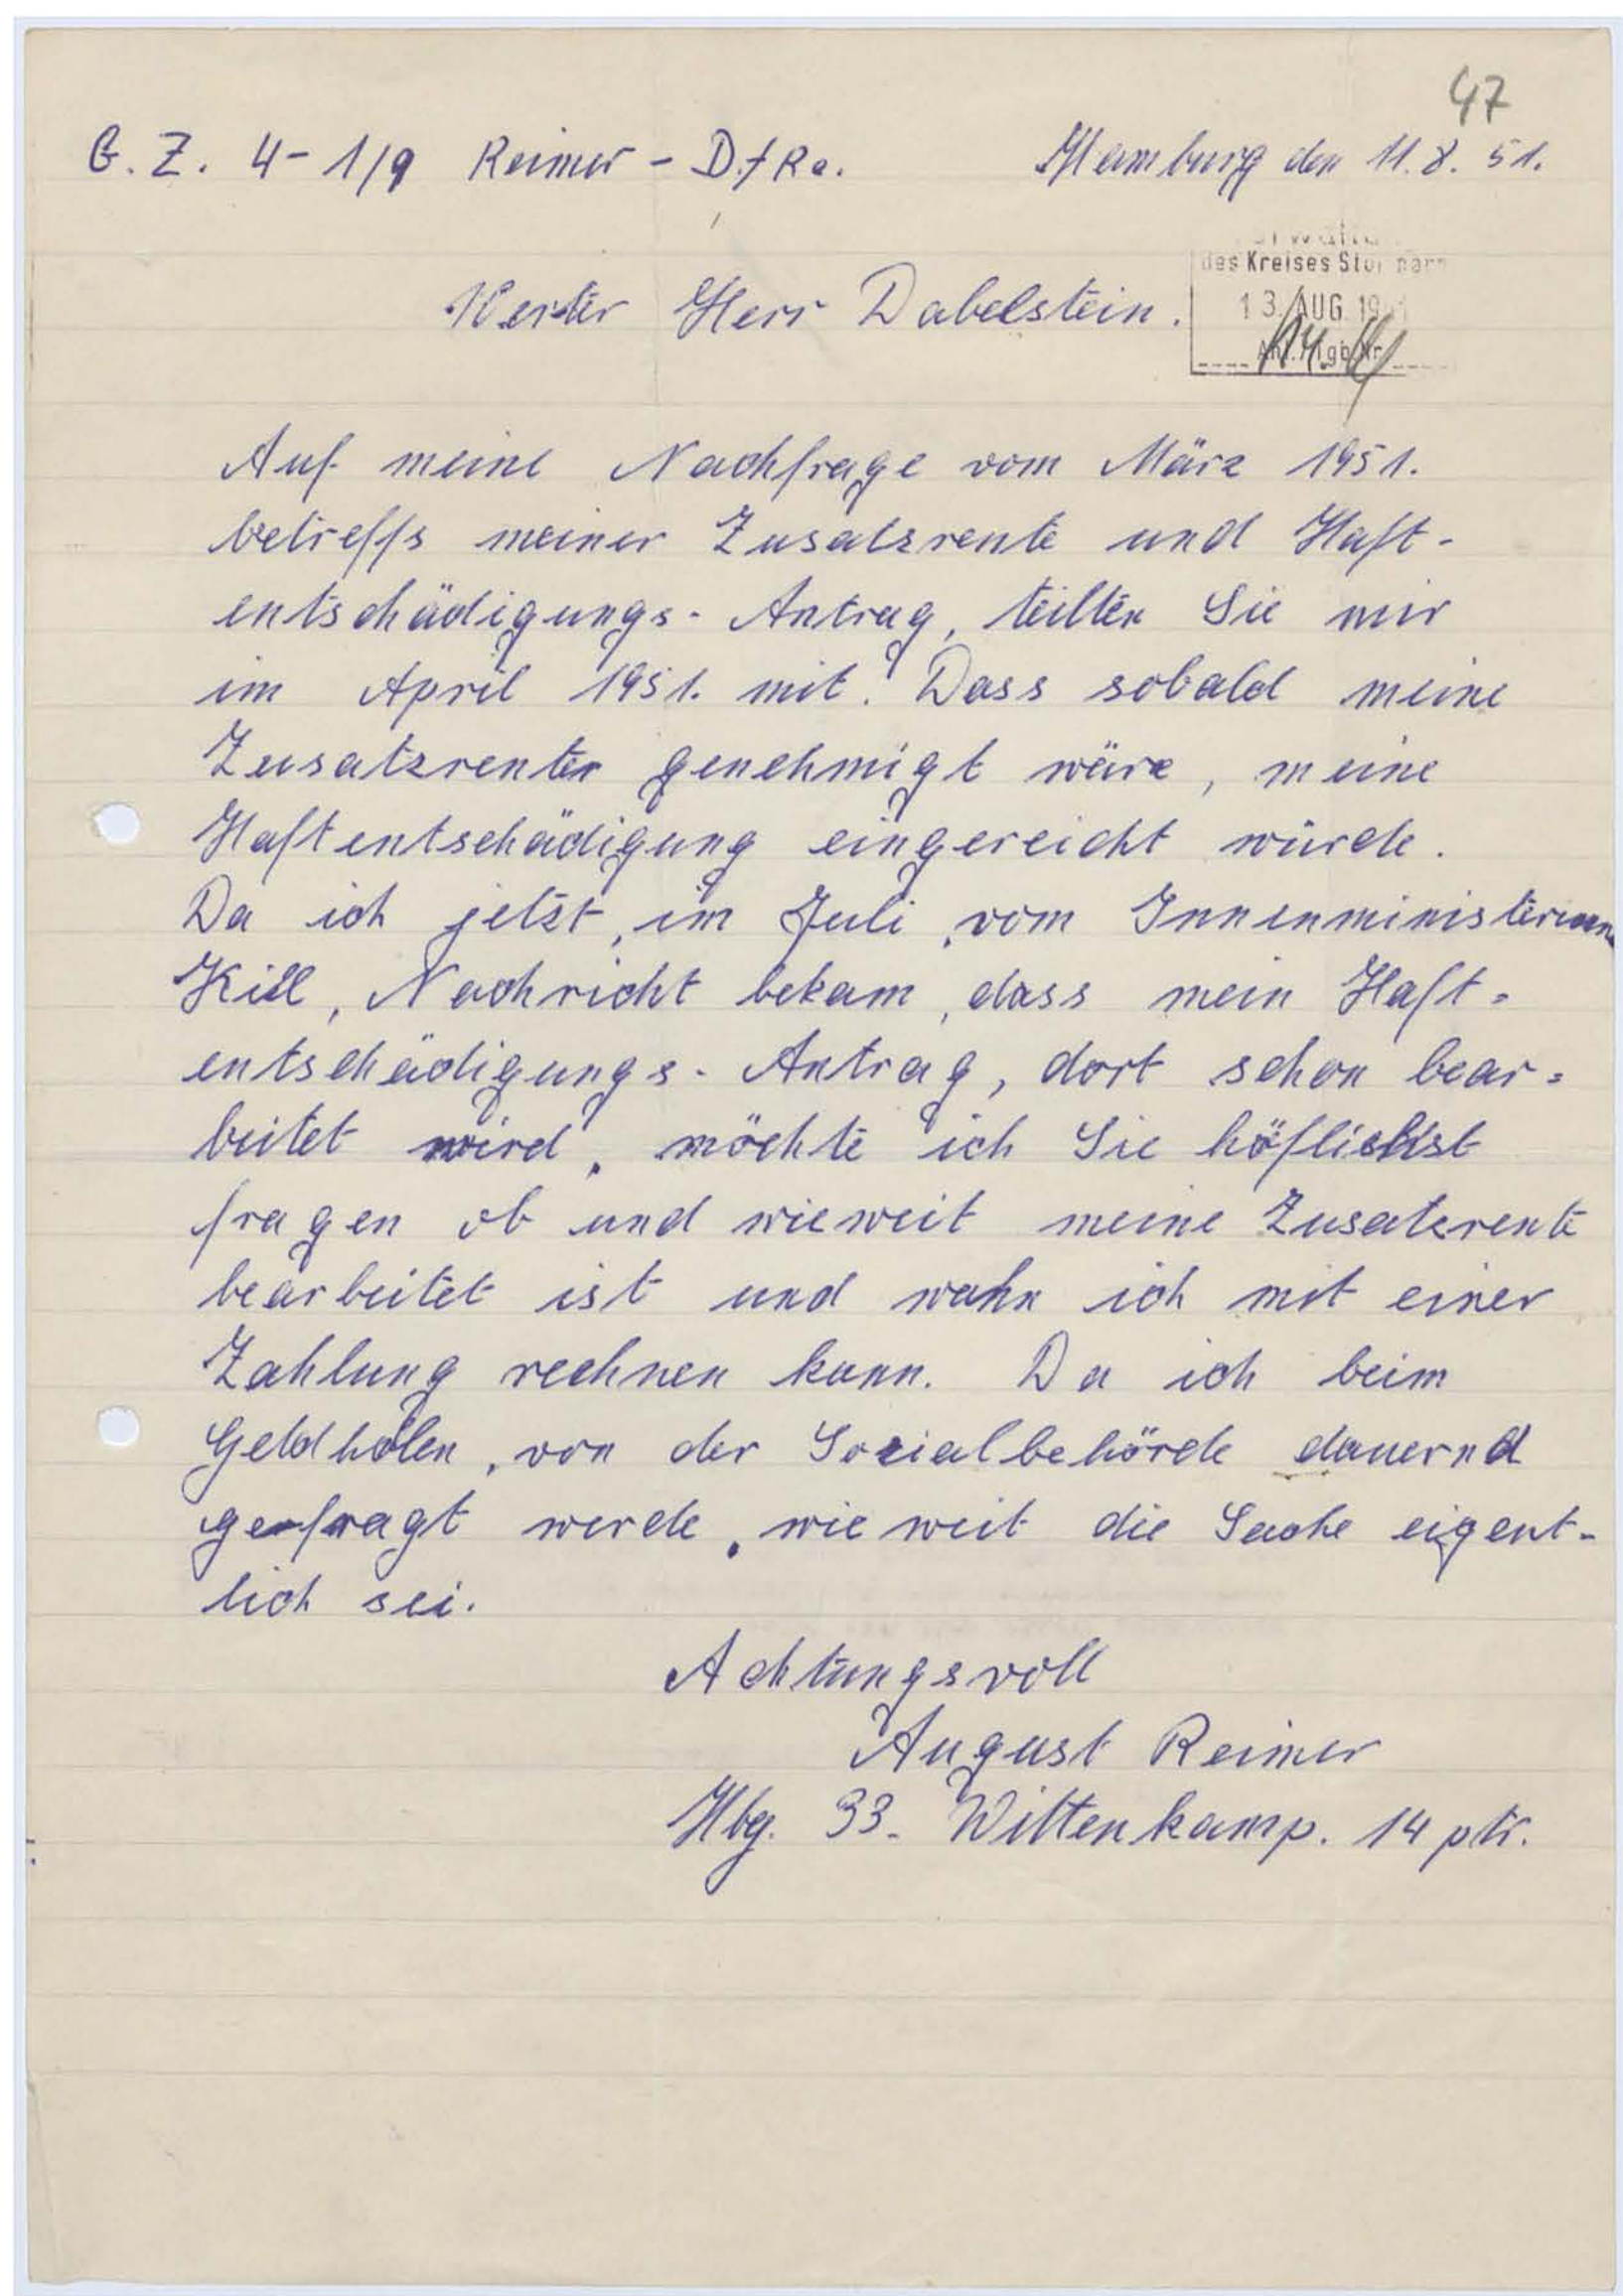 47
G. Z. 4 - 1/9 Reimer - D./Re. Hamburg den 11.8. 51.
des Kreises Stormarn
13. AUG. 1951
Werter Herr Dabelstein.
Auf meine Nachfrage vom März 1951.
betreffs meiner Zusatzrente und Haft-
entschädigungs- Antrag, teilten Sie mir
im April 1951. mit! Dass sobald meine
Zusatzrente genehmigt wäre, meine
Haftentschädigung eingereicht würde.
Da ich jetzt, im Juli, vom Innenministerium
Kiel, Nachricht bekam, dass mein Haft-
entschädigungs- Antrag, dort schon bear-
beitet wird, möchte ich Sie höflichst
fragen ob und wieweit meine Zusatzrente
bearbeitet ist und wahn ich mit einer
Zahlung rechnen kann. Da ich beim
Geldholen, von der Sozialbehörde dauernd
gefragt werde, wie weit die Sache eigent-
lich sei.
Achtungsvoll
August Reimer
Hbg. 33. Wittenkamp. 14 ptr.